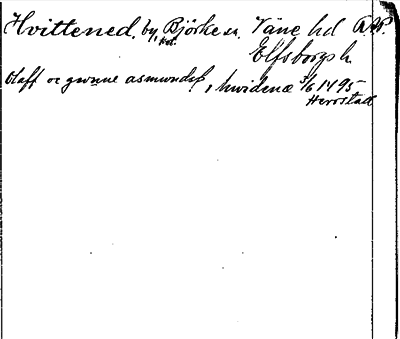 Hvittened, by, Björke sn. Väne hd
Elfsborgs l.
olaff oc gwnne asmundes, hwidenæ 3/6 1495
Herrstad